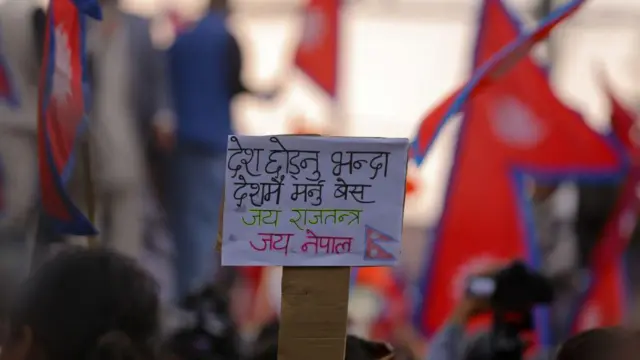 देश छोड्नु भन्दा
देशमै मर्नु बेस
जय राजतन्त्र
जय नेपाल